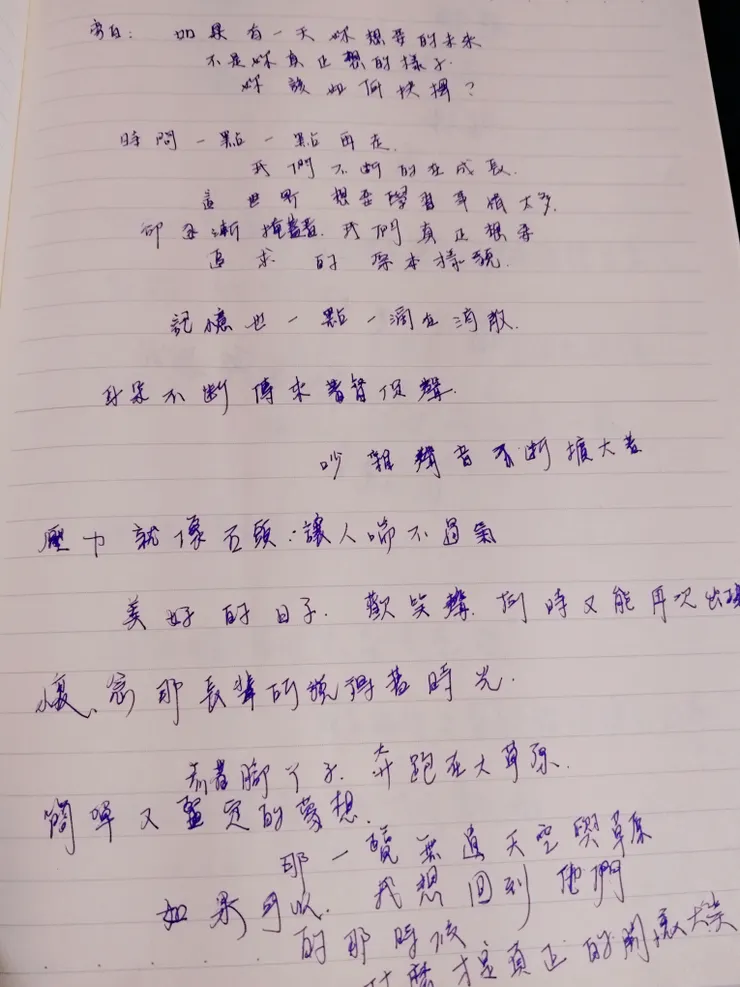 旁白: 如果有一天妳想要的未來
不是妳真正想的樣子.
妳該如何抉擇?
時間一點一點再走.
我們不斷的在成長.
這世界 想要學習事情太多.
卻逐漸掩蓋著.我們真正想要
追求的原本樣貌.
記憶也一點一滴在消散.
耳朵不斷傳來著督促聲.
吵雜聲音不斷擴大著
壓力就像石頭:讓人喘不過氣
美好的日子.歡笑聲.何時又能再次出現
懷念那長輩所說得著時光.
著腳丫子.奔跑在大草原.
簡單又堅定的夢想.
那一覽無遺天空與草原
如果可以.我想回到他們
的那時候
什麼才是真正的開懷大笑